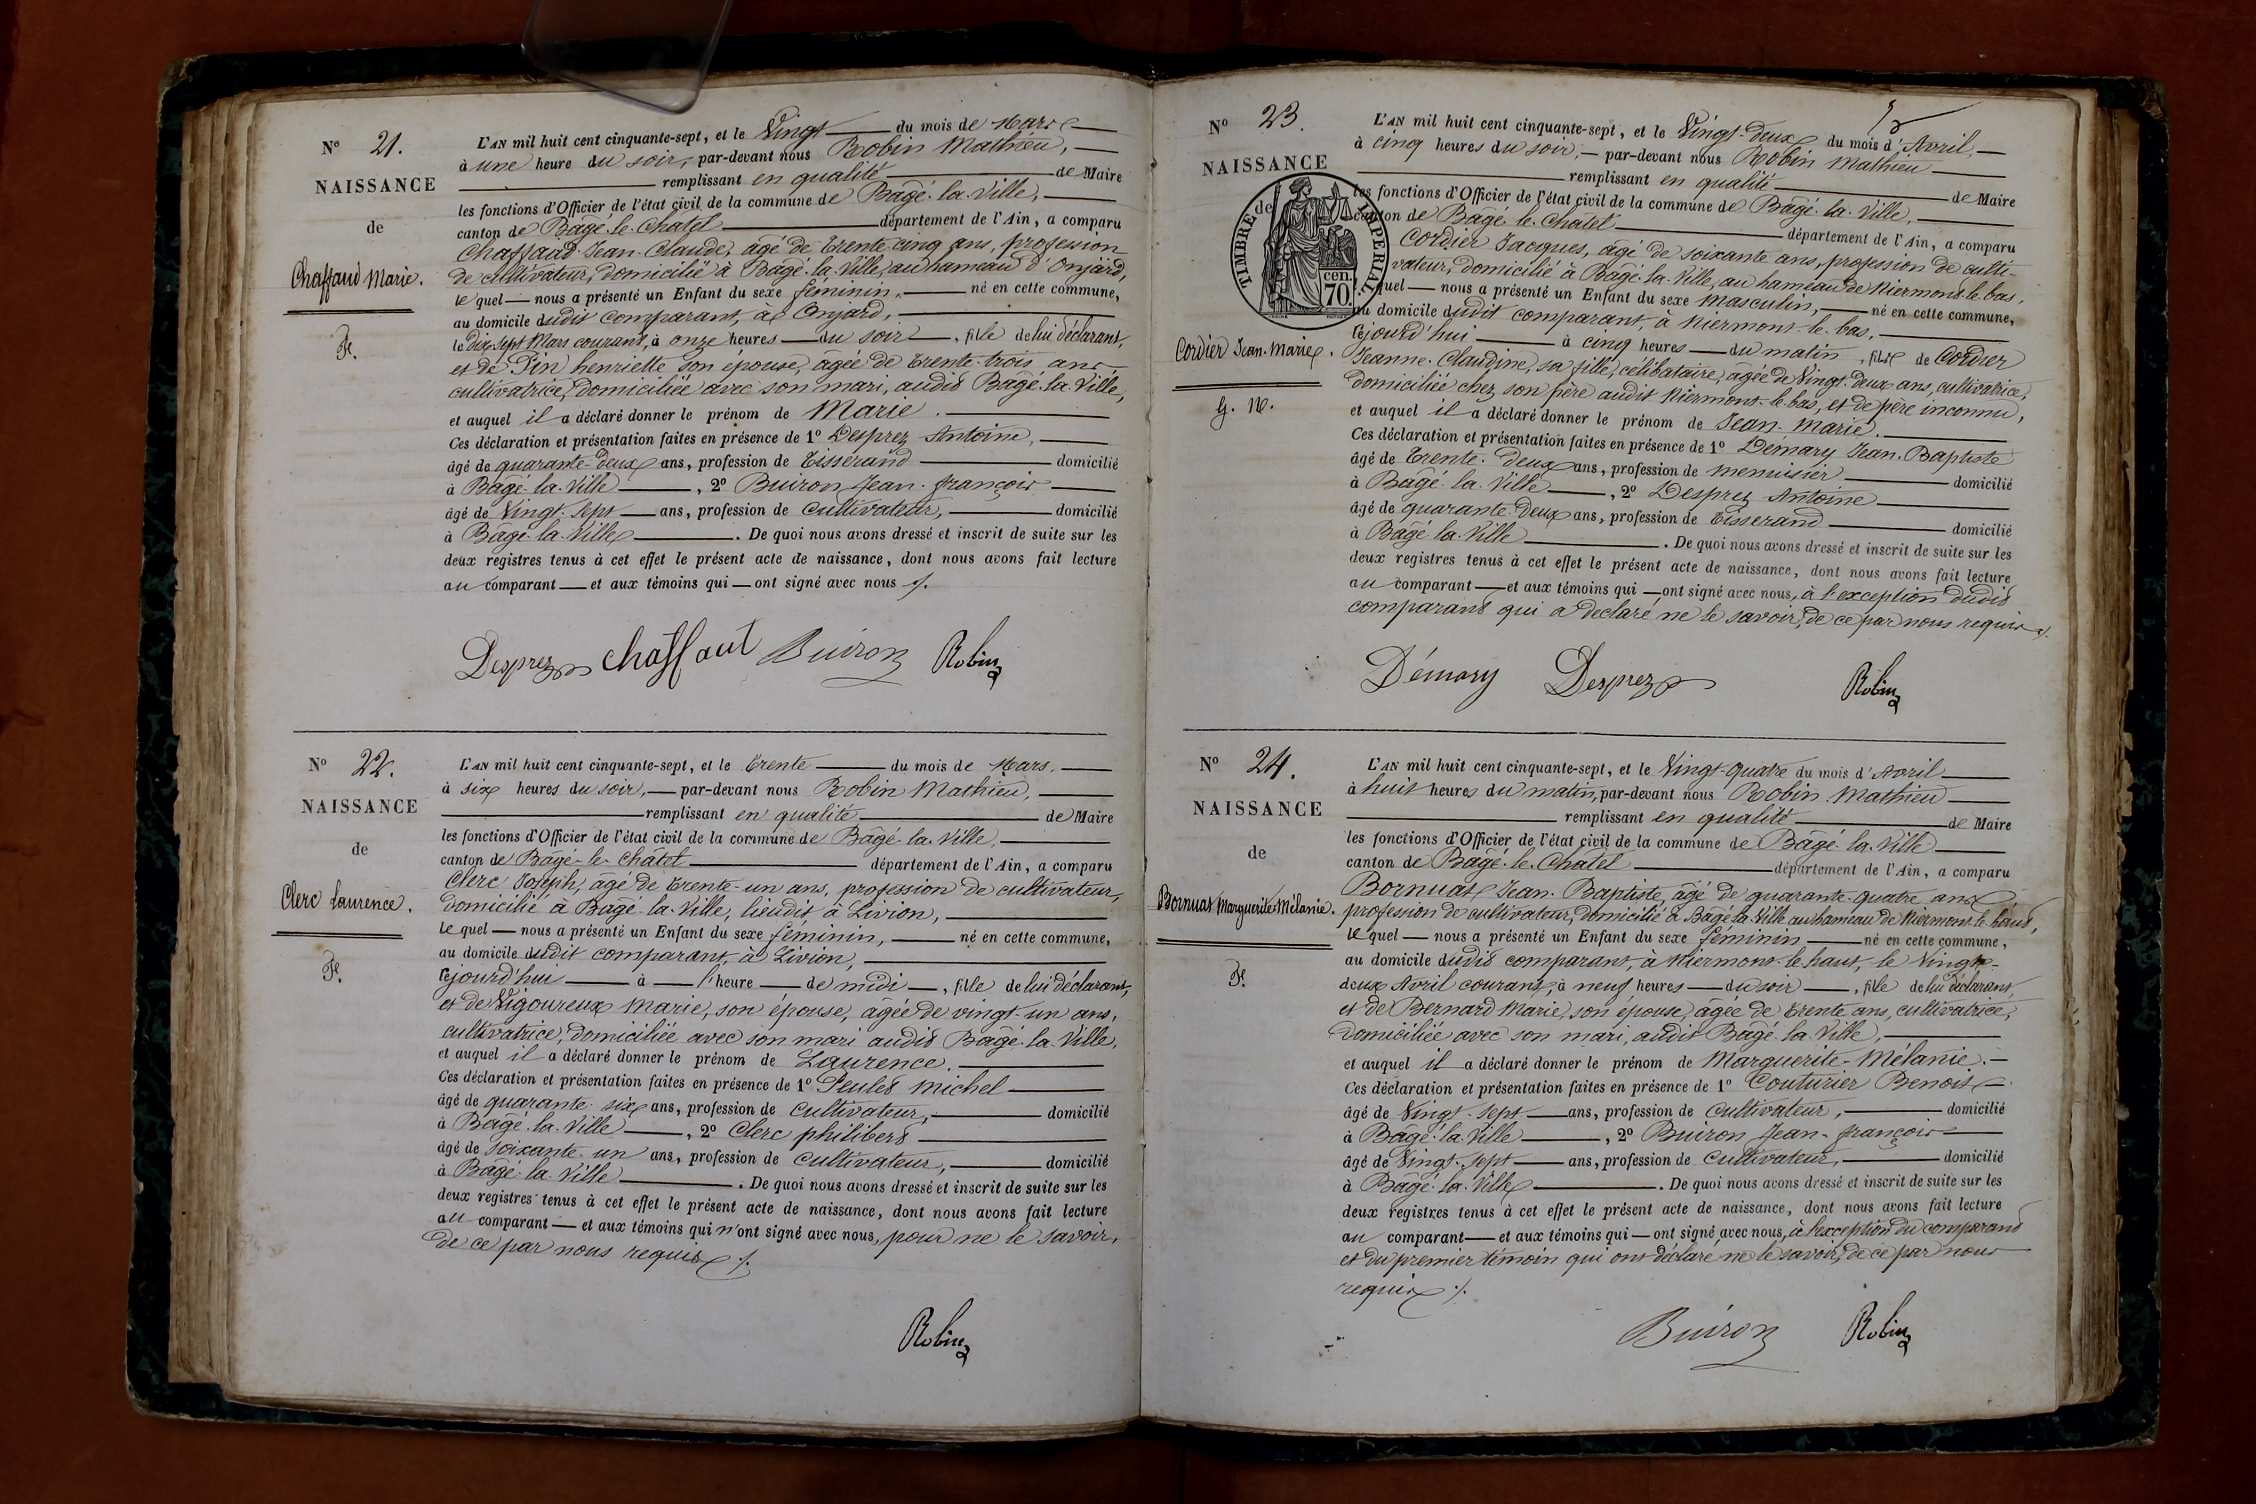 Nº 21.
NAISSANCE
de
Chaffaud Marie.
F.
L'AN mil huit cent cinquante-sept, et le Vingt du mois de Mars
à une heure du soir, par-devant nous Robin Mathieu,
remplissant en qualité de Maire
les fonctions d'Officier de l'état civil de la commune de Bâgé-la-Ville,
canton de Bâgé-le-Châtel département de l'Ain, a comparu
Chaffaud Jean-Claude, âgé de trente-cinq ans, profession
de cultivateur, domicilié à Bâgé-la-Ville, au hameau d'Onjard,
lequel nous a présenté un Enfant du sexe féminin, né en cette commune,
au domicile dudit comparant, à Onjard,
le dix-sept Mars courant, à onze heures du soir, fille de lui déclarant,
et de Pin henriette son épouse, âgée de trente-trois ans
cultivatrice, domiciliée avec son mari, audit Bâgé-la-Ville,
et auquel il a déclaré donner le prénom de Marie.
Ces déclaration et présentation faites en présence de 1º Desprez Antoine,
âgé de quarante-deux ans, profession de tisserand domicilié
à Bâgé-la-Ville, 2º Buiron Jean-françois
âgé de Vingt-sept ans, profession de cultivateur, domicilié
à Bâgé-la-Ville. De quoi nous avons dressé et inscrit de suite sur les
deux registres tenus à cet effet le présent acte de naissance, dont nous avons fait lecture
au comparant et aux témoins qui ont signé avec nous ./.
Desprez chaffaut Buiron Robin
Nº 22.
NAISSANCE
de
Clerc Laurence.
F.
L'AN mil huit cent cinquante-sept, et le trente du mois de Mars,
à six heures du soir, par-devant nous Robin Mathieu,
remplissant en qualité de Maire
les fonctions d'Officier de l'état civil de la commune de Bâgé-la-Ville,
canton de Bâgé-le-Châtel département de l'Ain, a comparu
Clerc Joseph, âgé de trente-un ans, profession de cultivateur,
domicilié à Bâgé-la-Ville, lieudit à Livion,
lequel nous a présenté un Enfant du sexe féminin, né en cette commune,
au domicile dudit comparant, à Livion,
cejourd'hui à l'heure de midi, fille de lui déclarant,
et de Vigoureux Marie, son épouse, âgée de vingt-un ans,
cultivatrice, domiciliée avec son mari audit Bâgé-la-Ville,
et auquel il a déclaré donner le prénom de Laurence.
Ces déclaration et présentation faites en présence de 1º Peulet Michel
âgé de quarante-six ans, profession de cultivateur, domicilié
à Bâgé-la-Ville, 2º Clerc philibert
âgé de soixante-un ans, profession de cultivateur, domicilié
à Bâgé-la-Ville. De quoi nous avons dressé et inscrit de suite sur les
deux registres tenus à cet effet le présent acte de naissance, dont nous avons fait lecture
au comparant et aux témoins qui n'ont signé avec nous, pour ne le savoir,
de ce par nous requis ./.
Robin
Nº 23.
NAISSANCE
de
TIMBRE IMPERIAL
cen.
70.
Cordier Jean-Marie.
G. N.
L'AN mil huit cent cinquante-sept, et le Vingt-deux du mois d'Avril,
à cinq heures du soir, par-devant nous Robin Mathieu
remplissant en qualité de Maire
les fonctions d'Officier de l'état civil de la commune de Bâgé-la-Ville,
canton de Bâgé-le-Châtel département de l'Ain, a comparu
Cordier Jacques, âgé de soixante ans, profession de culti-
vateur, domicilié à Bâgé-la-Ville, au hameau de Niermont-le-bas,
lequel nous a présenté un Enfant du sexe masculin, né en cette commune,
au domicile dudit comparant, à Niermont-le-bas,
cejourd'hui à cinq heures du matin, fils de Cordier
Jeanne-Claudine, sa fille, célibataire, âgée de Vingt-deux ans, cultivatrice,
domiciliée chez son père audit Niermont-le-bas, et de père inconnu,
et auquel il a déclaré donner le prénom de Jean-Marie.
Ces déclaration et présentation faites en présence de 1º Démary Jean-Baptiste
âgé de trente-deux ans, profession de menuisier domicilié
à Bâgé-la-Ville, 2º Desprez Antoine
âgé de quarante-deux ans, profession de tisserand domicilié
à Bâgé-la-Ville. De quoi nous avons dressé et inscrit de suite sur les
deux registres tenus à cet effet le présent acte de naissance, dont nous avons fait lecture
au comparant et aux témoins qui ont signé avec nous, à l'exception dudit
comparant qui a déclaré ne le savoir, de ce par nous requis ./.
Démary Desprez Robin
Nº 24.
NAISSANCE
de
Bornuat Marguerite Mélanie.
F.
L'AN mil huit cent cinquante-sept, et le Vingt-quatre du mois d'Avril
à huit heures du matin, par-devant nous Robin Mathieu
remplissant en qualité de Maire
les fonctions d'Officier de l'état civil de la commune de Bâgé-la-Ville
canton de Bâgé-le-Châtel département de l'Ain, a comparu
Bornuat Jean-Baptiste, âgé de quarante-quatre ans
profession de cultivateur, domicilié à Bâgé-la-Ville au hameau de Niermont-le-haut,
lequel nous a présenté un Enfant du sexe féminin né en cette commune,
au domicile dudit comparant, à Niermont-le-haut, le Vingt-
deux Avril courant, à neuf heures du soir, fille de lui déclarant,
et de Bernard Marie, son épouse, âgée de trente ans, cultivatrice,
domiciliée avec son mari, audit Bâgé-la-Ville,
et auquel il a déclaré donner le prénom de Marguerite-Mélanie.
Ces déclaration et présentation faites en présence de 1º Couturier Benoit
âgé de Vingt-sept ans, profession de cultivateur, domicilié
à Bâgé-la-Ville, 2º Buiron Jean-françois
âgé de Vingt-sept ans, profession de cultivateur, domicilié
à Bâgé-la-Ville. De quoi nous avons dressé et inscrit de suite sur les
deux registres tenus à cet effet le présent acte de naissance, dont nous avons fait lecture
au comparant et aux témoins qui ont signé avec nous, à l'exception du comparant
et du premier témoin qui ont déclaré ne le savoir, de ce par nous
requis ./.
Buiron Robin